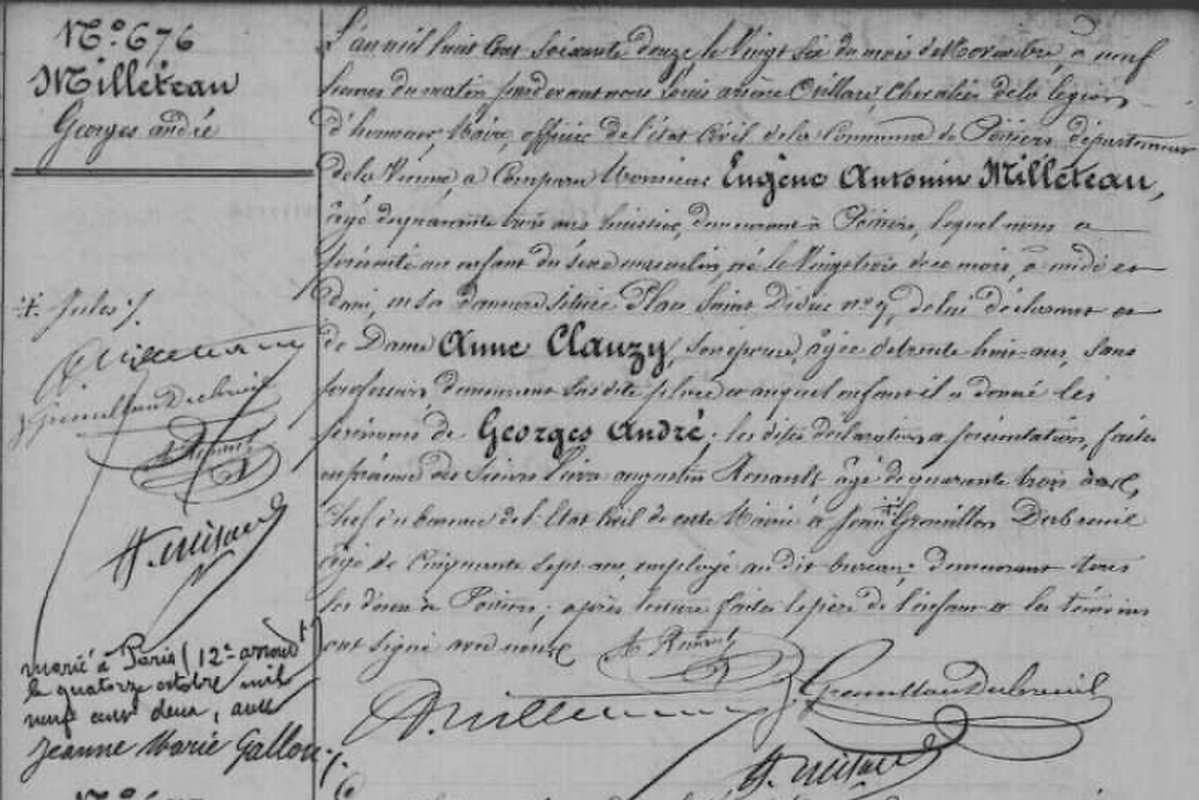 N.° 676
Milleteau
Georges andré
L'an mil huit cent soixante douze le vingt six du mois de Novembre, à neuf
heures du matin par devant nous Louis arsène Orillard, Chevalier de la légion
d'honneur, Maire, officier de l'état Civil de la Commune de Poitiers département
de la Vienne, a Comparu Monsieur Eugène Antonin Milleteau,
âgé de quarante trois ans huissier, demeurant à Poitiers, lequel nous a
présenté un enfant du sexe masculin, né le vingt trois de ce mois, à midi et
demi, en sa demeure située Place Saint Didier n° 9, de lui déclarant et
de Dame Anne Clauzy, son épouse, âgée de trente huit ans, sans
profession, demeurant susdite place et auquel enfant il a donné les
prénoms de Georges André; les dites déclaration et présentation, faites
en présence des sieurs Pierre augustin Arnault âgé de quarante trois ans,
Chef du bureau de l'Etat Civil de cette Mairie et Jean Gremillon Dubreuil
âgé de Cinquante sept ans, employé au dit bureau; demeurant tous
les deux à Poitiers; après lecture faite le père de l'enfant et les témoins
ont signé avec nous
* Jules /.
A. Milleteau
Gremillon Dubreuil
A. Arnault
marié à Paris (12e arrondt)
le quatorze octobre mil
neuf cent deux, avec
Jeanne Marie Gallon ./.
A. Arnault
A. Milleteau
Gremillon Dubreuil